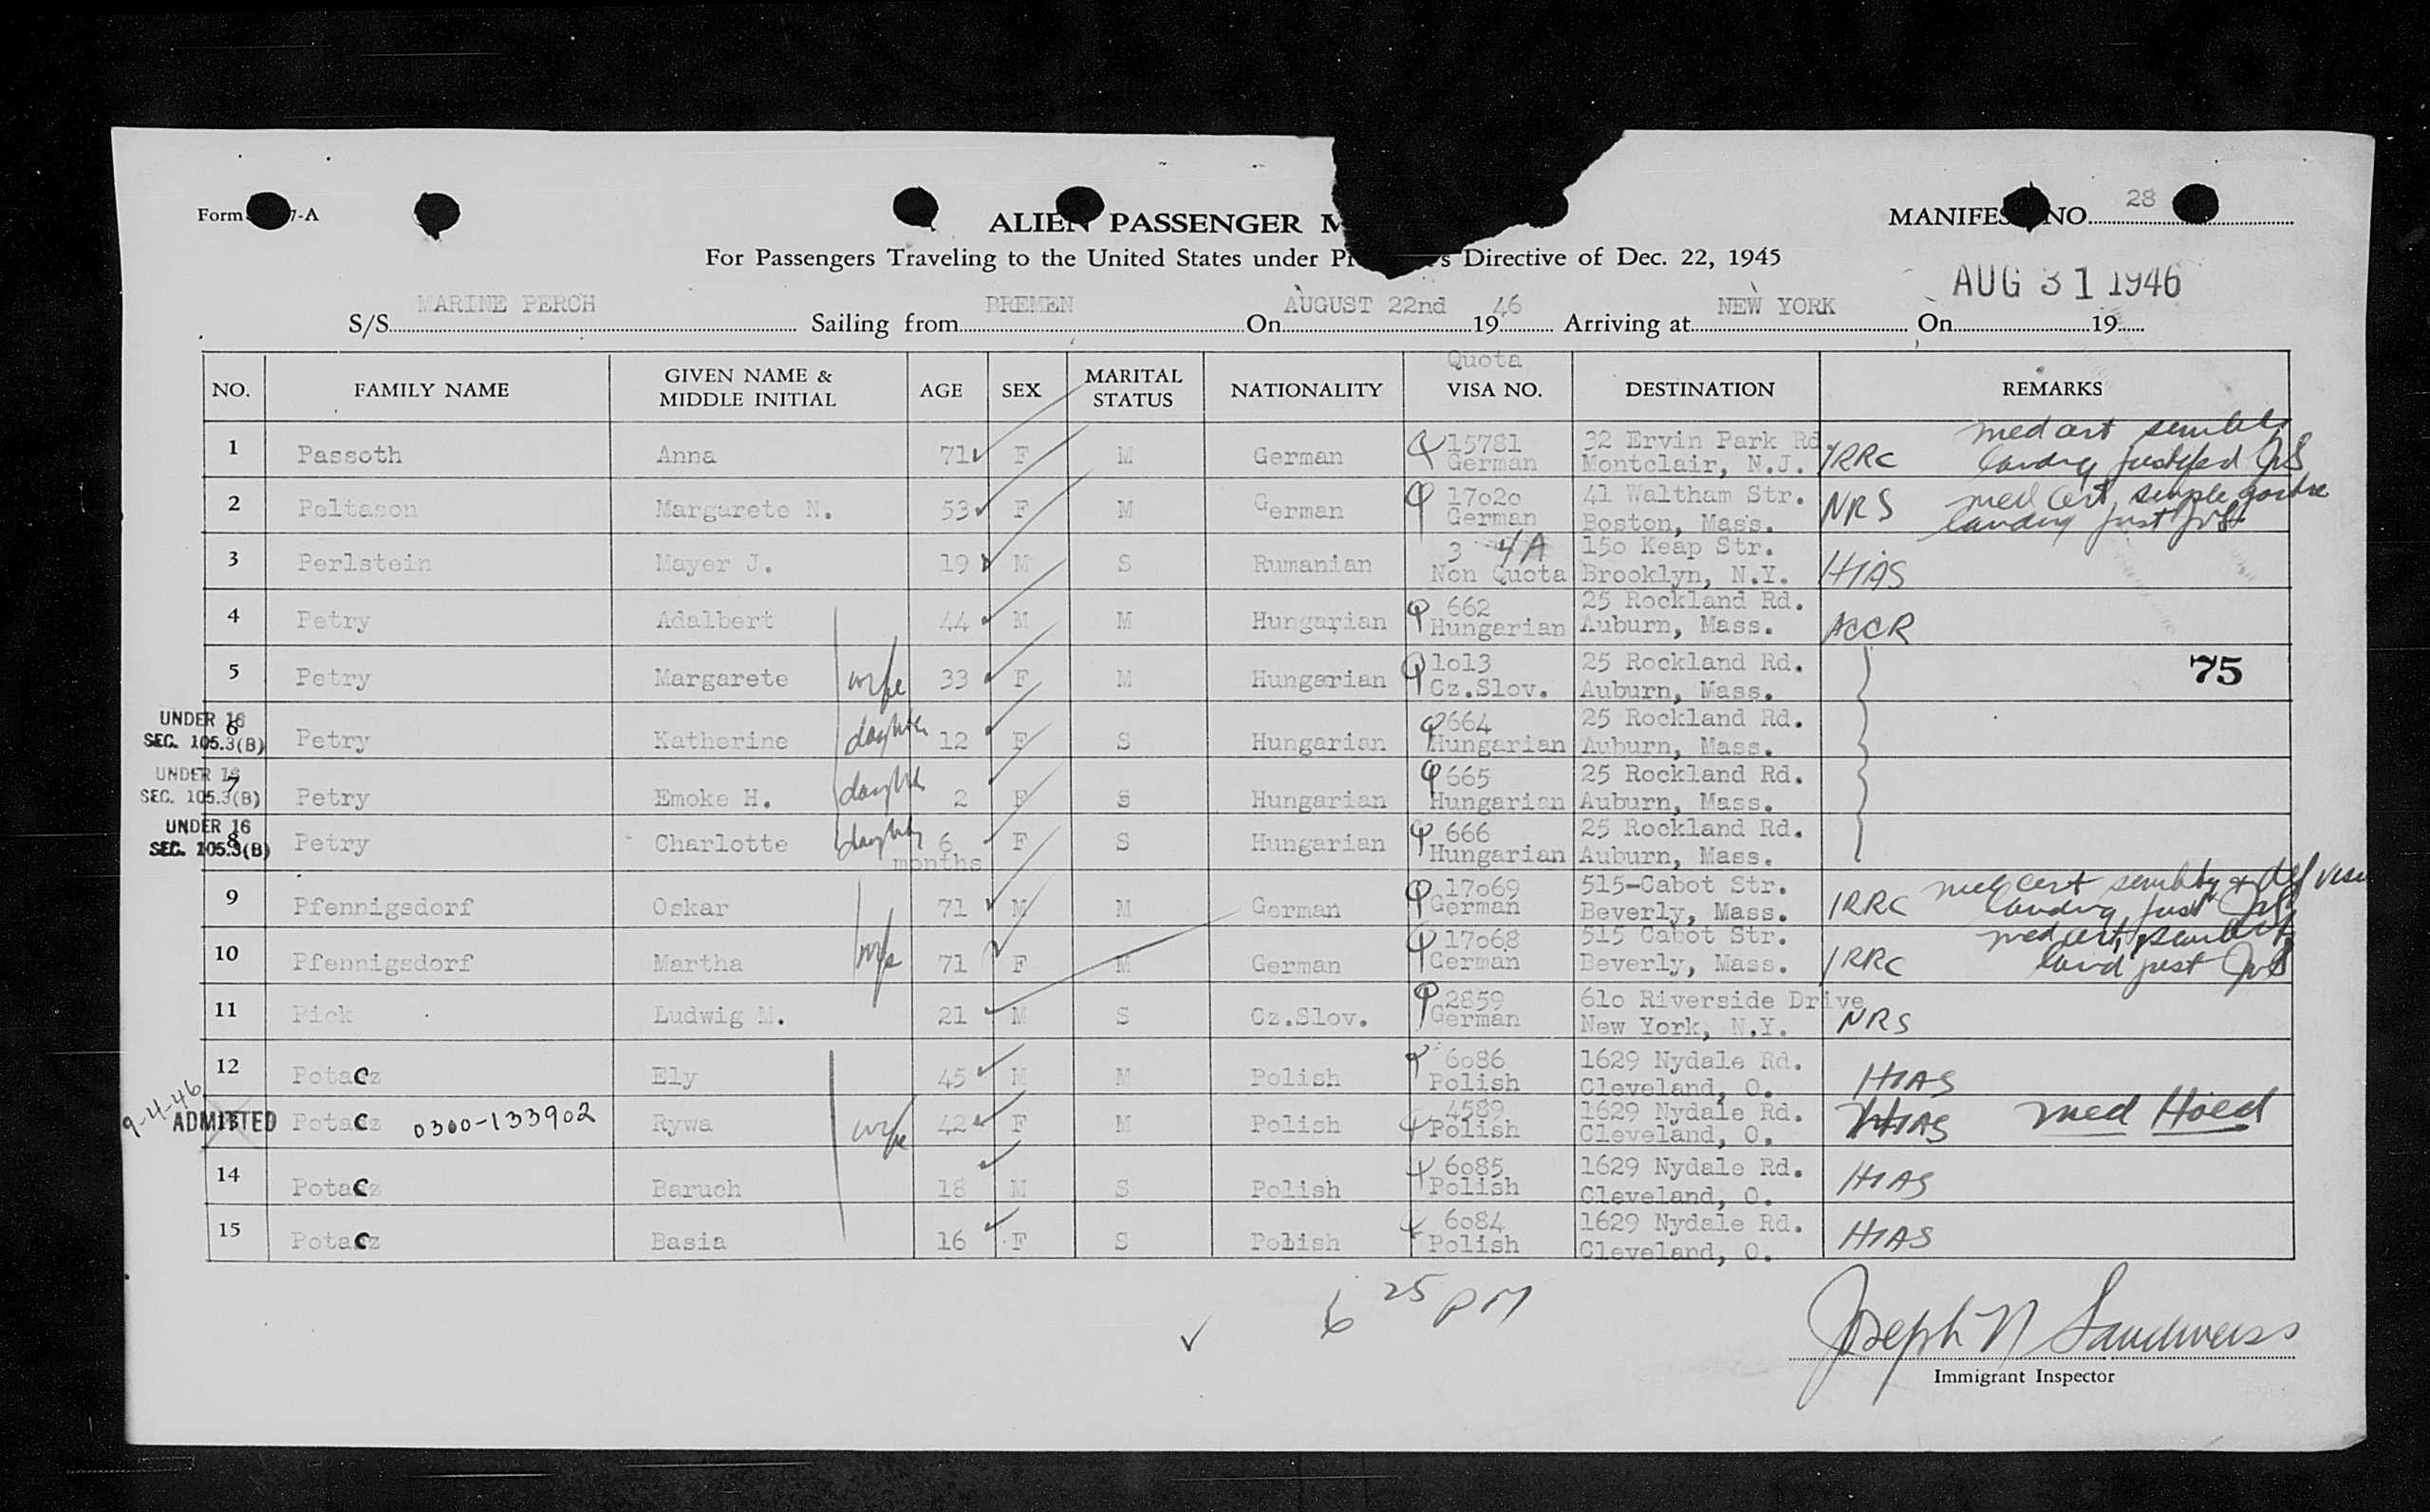 Form 7-A
ALIEN PASSENGER M
MANIFES NO. 28
For Passengers Traveling to the United States under Pr 's Directive of Dec. 22, 1945
AUG 31 1946
S/S MARINE PERCH Sailing from BREMEN On AUGUST 22nd 19 46 Arriving at NEW YORK On 19
NO. FAMILY NAME GIVEN NAME & MIDDLE INITIAL AGE SEX MARITAL STATUS NATIONALITY Quota VISA NO. DESTINATION REMARKS
1 Passoth Anna 71 F M German 15781 German 32 Ervin Park Rd Montclair, N.J. IRRC med cert senility landing justified
2 Peltason Margarete N. 53 F M German 17020 German 41 Waltham Str. Boston, Mass. NRS med cert, simple landing just
3 Perlstein Mayer J. 19 M S Rumanian 3 4A Non Quota 150 Keap Str. Brooklyn, N.Y. HIAS
4 Petry Adalbert 44 M M Hungarian 662 Hungarian 25 Rockland Rd. Auburn, Mass. ACCR
5 Petry Margarete wife 33 F M Hungarian 1o13 Cz.Slov. 25 Rockland Rd. Auburn, Mass. 75
UNDER 16 SEC. 105.3(B) 6 Petry Katherine daughter 12 F S Hungarian 664 Hungarian 25 Rockland Rd. Auburn, Mass.
UNDER 16 SEC. 105.3(B) 7 Petry Emoke H. daughter 2 F S Hungarian 665 Hungarian 25 Rockland Rd. Auburn, Mass.
UNDER 16 SEC. 105.3(B) 8 Petry Charlotte daughter 6 months F S Hungarian 666 Hungarian 25 Rockland Rd. Auburn, Mass.
9 Pfennigsdorf Oskar 71 M M German 17o69 German 515-Cabot Str. Beverly, Mass. IRRC med cert senility & def vision landing just
10 Pfennigsdorf Martha wife 71 F M German 17o68 German 515 Cabot Str. Beverly, Mass. IRRC med cert, senility land just
11 Pick Ludwig M. 21 M S Cz.Slov. 2859 German 61o Riverside Drive New York, N.Y. NRS
12 Potacz Ely 45 M M Polish 6o86 Polish 1629 Nydale Rd. Cleveland, O. HIAS
9-4-46 ADMITTED 13 Potacz 0300-133902 Rywa wife 42 F M Polish 4589 Polish 1629 Nydale Rd. Cleveland, O. HIAS med Hoed
14 Potacz Baruch 18 M S Polish 6o85 Polish 1629 Nydale Rd. Cleveland, O. HIAS
15 Potacz Basia 16 F S Polish 6o84 Polish 1629 Nydale Rd. Cleveland, O. HIAS
6 25 PM
Joseph N Sandweiss
Immigrant Inspector